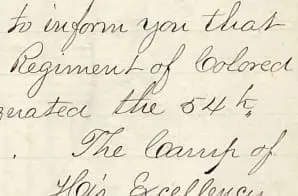 to inform you that
Regiment of Colored
nerated the 54th,
. The Camp of
His Excellency